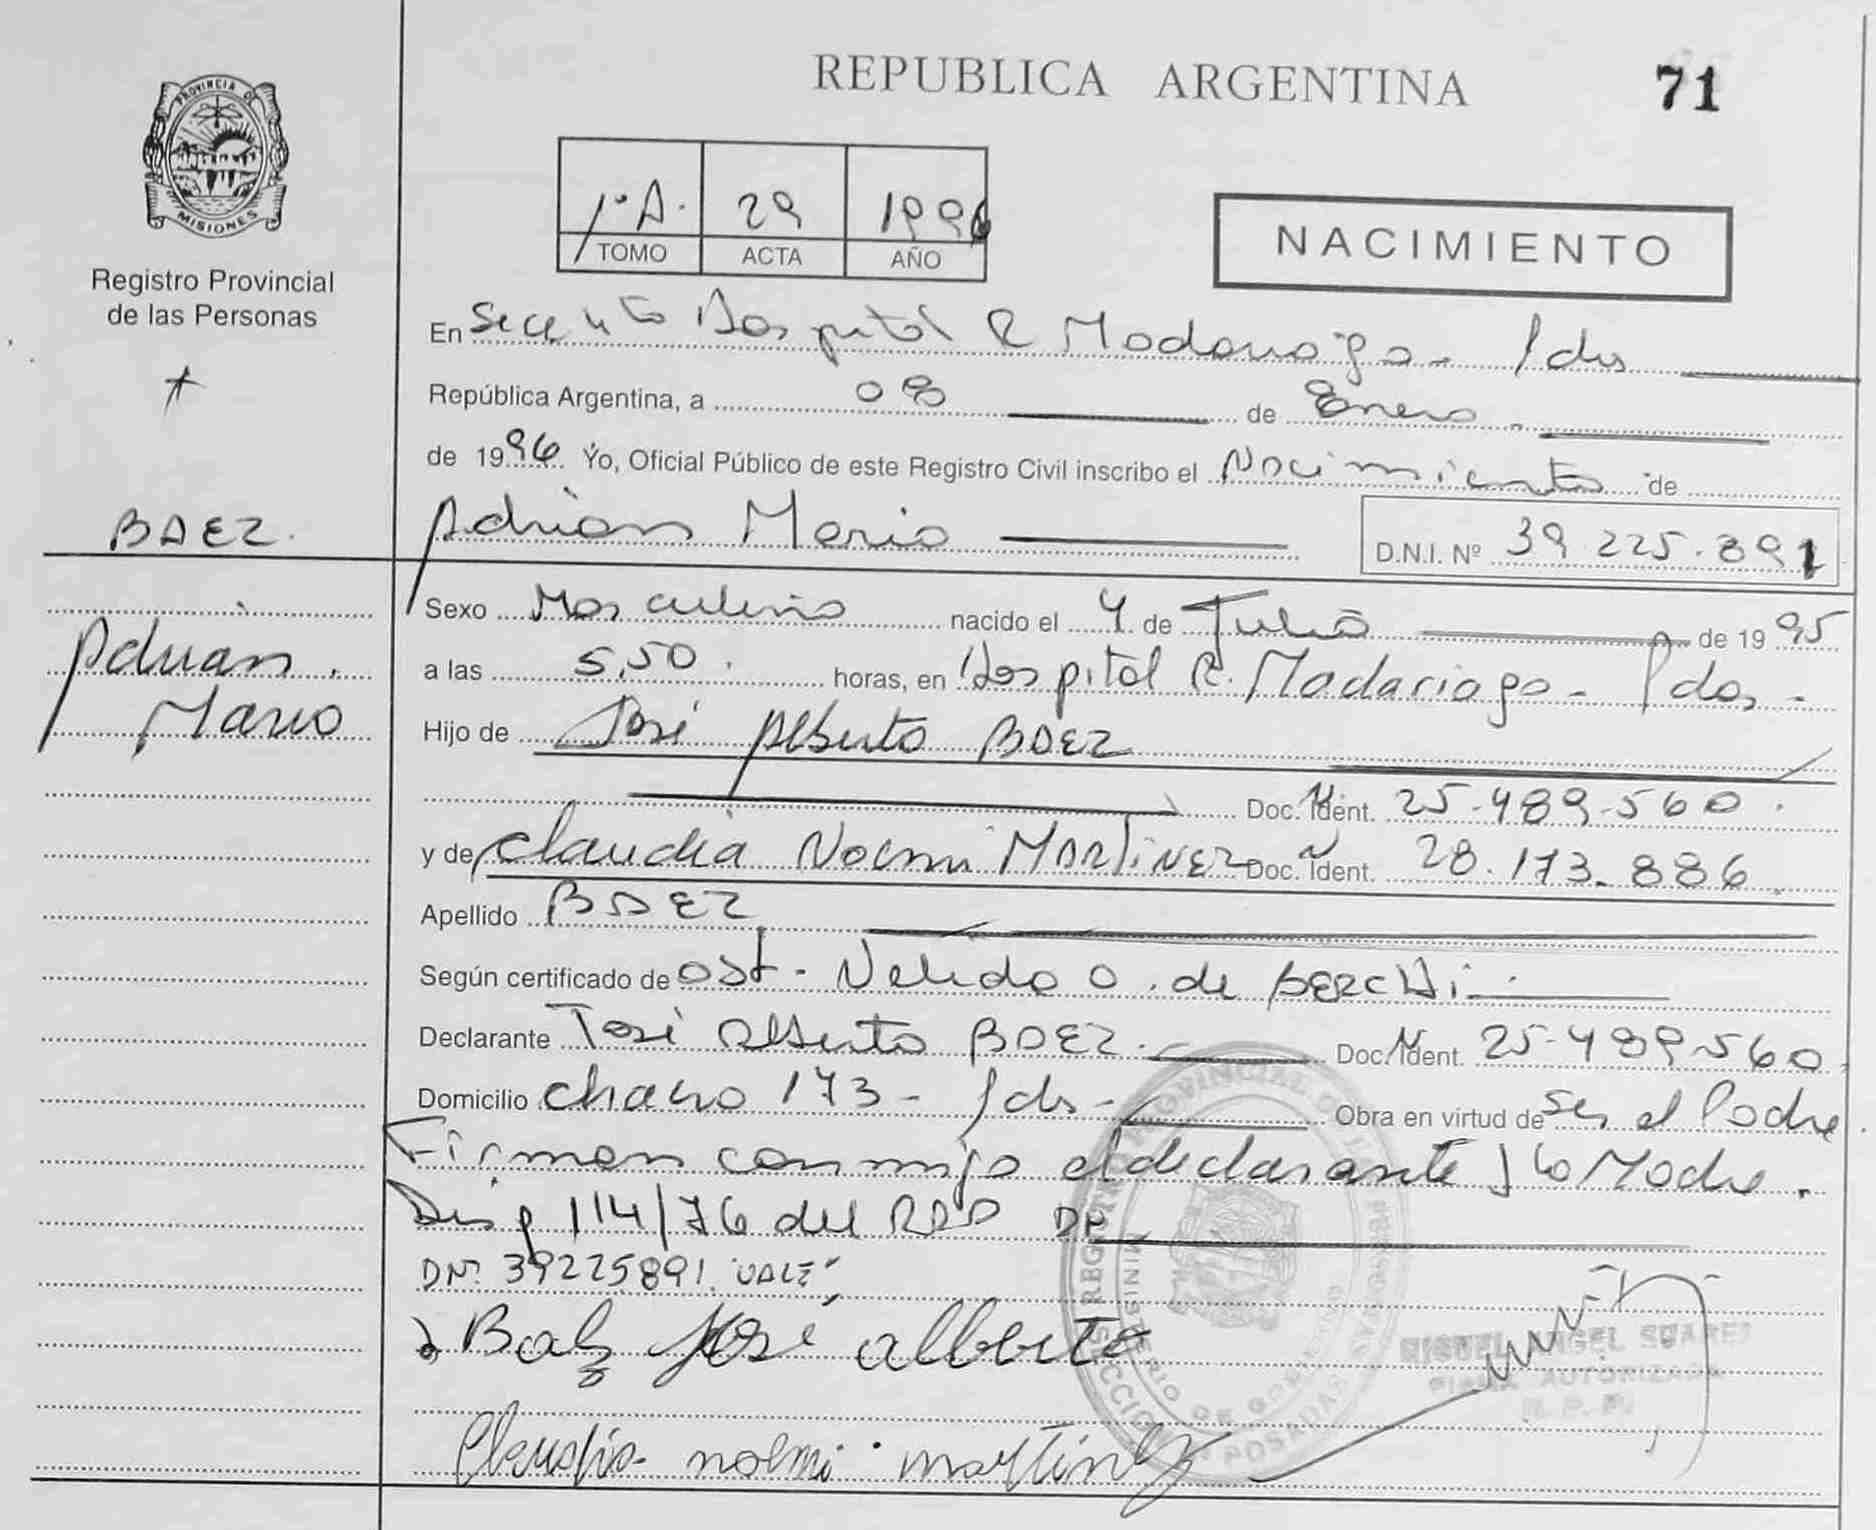 REPUBLICA ARGENTINA
71
PROVINCIA DE
MISIONES
Registro Provincial
de las Personas
1º A. 29 1996
TOMO ACTA AÑO
NACIMIENTO
En Secc 4 to Hospital R Madariaga - Pdas
República Argentina, a 08 de Enero
de 1996 Yo, Oficial Público de este Registro Civil inscribo el Nacimiento de
BAEZ.
Adrian Mario
D.N.I. Nº 39.225.891
Adrian
Mario
Sexo Masculino nacido el 4 de Julio de 1995
a las 5,50 . horas, en Hospital R. Madariaga - Pdas -
Hijo de José Alberto BAEZ
Doc. Ident. 25.489.560.
y de Claudia Noemi MARTINEZ Doc. Ident. 28.173.886.
Apellido BAEZ
Según certificado de Obst. Nelida O. de BERCHi
Declarante José Alberto BAEZ. Doc. Ident. 25.489.560.
Domicilio Chaco 173 - Pdas - Obra en virtud de Ser el Padre
Firman conmigo el declarante y la Madre.
Disp 114/76 del RPP
DNI. 39225891 "VALE"
Baez José alberto
Claudia noemi martinez
MIGUEL ANGEL SUAREZ
FIRMA AUTORIZADA
R. P. P.
REGISTRO PROVINCIAL DE LAS PERSONAS
MINISTERIO DE GOBIERNO
POSADAS